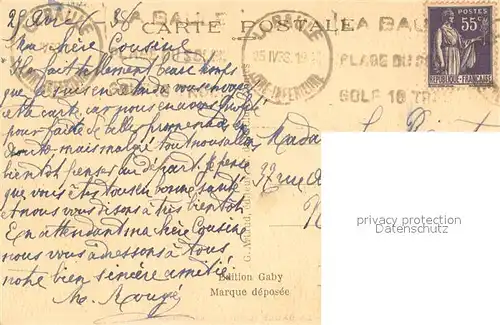 25 Avril 38
LA BAULE
LA BAULE
CARTE POSTALE
25 IV 38
LOIRE INFERIEURE
PLAGE DU SOLEIL
GOLF 18 TROUS
POSTES
55c
REPUBLIQUE FRANÇAISE
Ma chère Cousine
Il fait tellement beau temps
que je suis en retard à vous envoyer
cette carte, car nous en avons profité
pour faire de belles promenades
en auto mais malgré tout nous allons
bientôt penser au départ. Je pense
que vous êtes tous en bonne santé
et nous vous disons à très bientôt
En attendant ma chère Cousine
nous vous adressons à tous
notre bien sincère amitié.
M. Rougé
Madame
37 rue
Edition Gaby
Marque déposée
privacy protection
Datenschutz